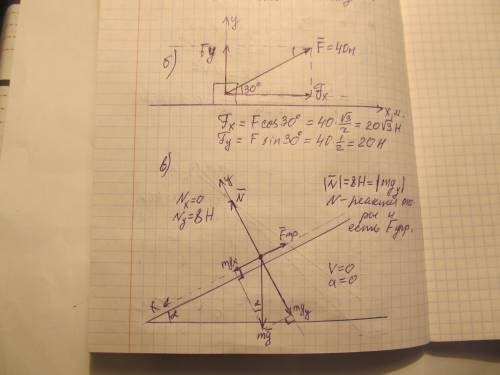 б)
y
Fy
F̅ = 40н
30°
Fx
x, м.
Fx = F cos30° = 40 · √3/2 = 20√3 H
Fy = F sin30° = 40 · 1/2 = 20H
в)
y
N̅
Nx = 0
Ny = 8H
|N̅| = 8H = |mgy|
N - реакция опо-
ры и
есть Fупр.
F̅тр.
mgx
V = 0
a = 0
x
α
α
α
mgy
mg̅